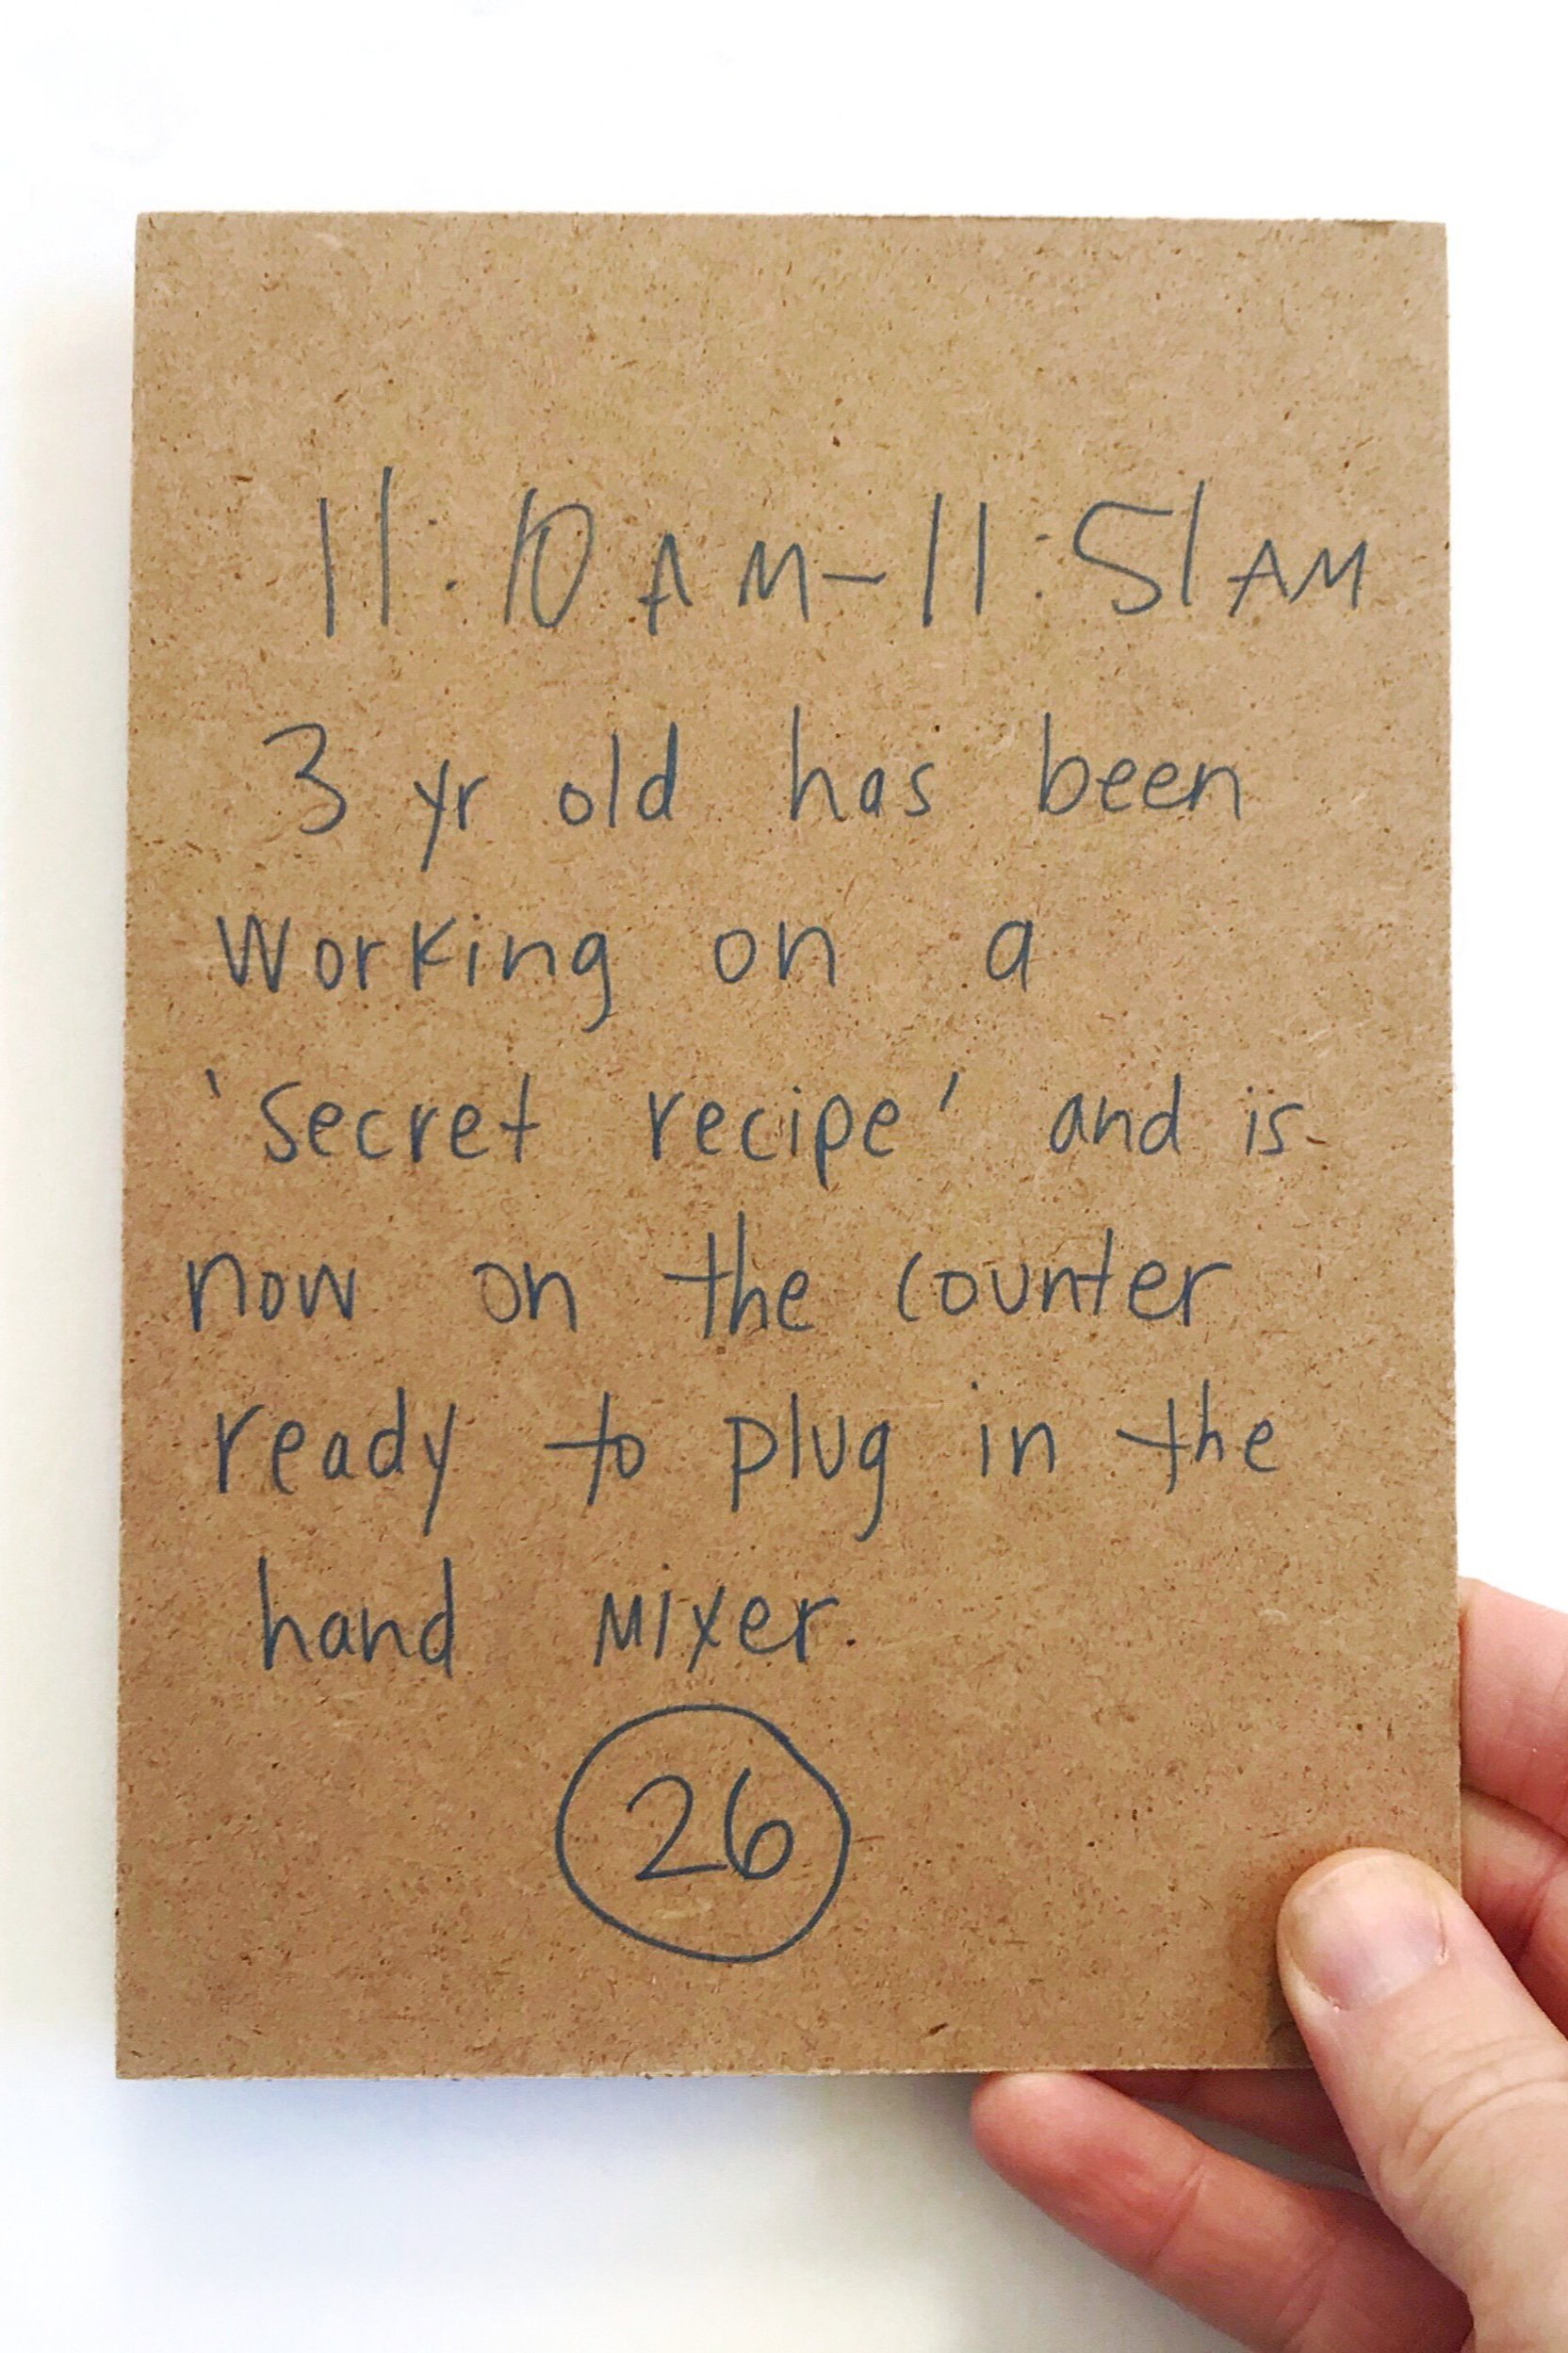 11:10AM-11:51AM
3 yr old has been
working on a
'secret recipe' and is
now on the counter
ready to plug in the
hand mixer.
26